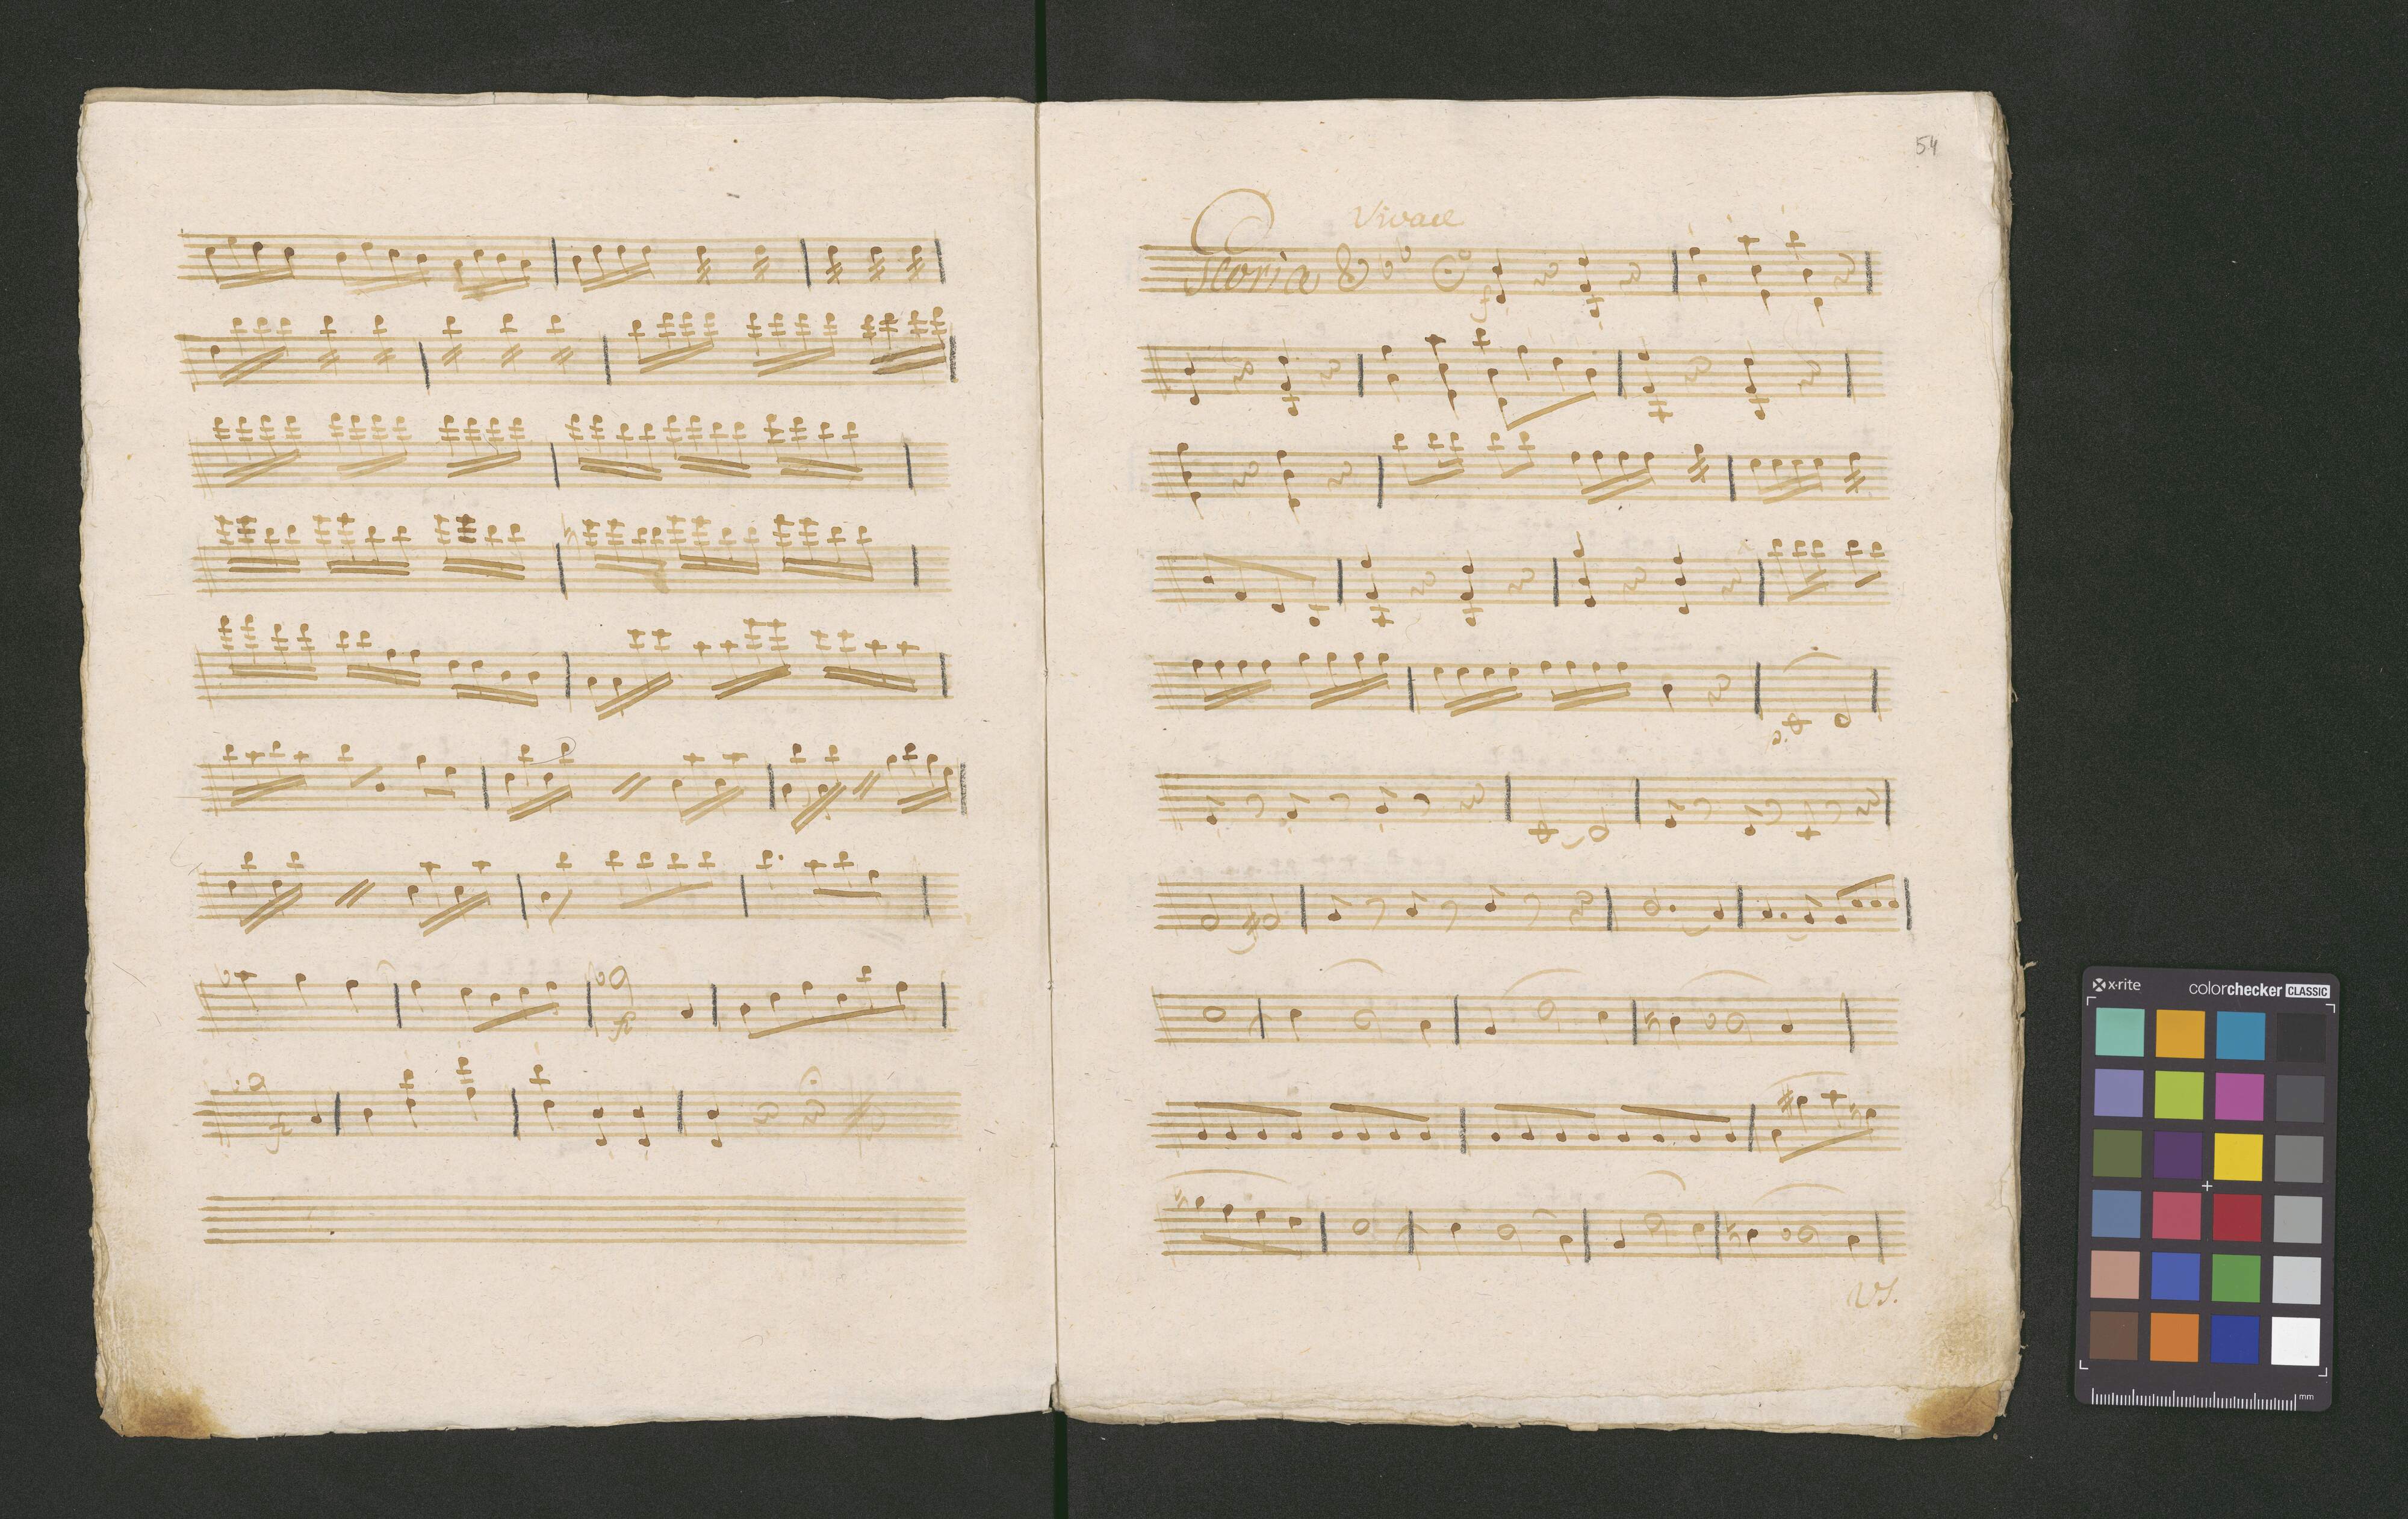 54
Vivace
Gloria
f
fp
f
p.
VS.
x·rite
colorchecker CLASSIC
mm